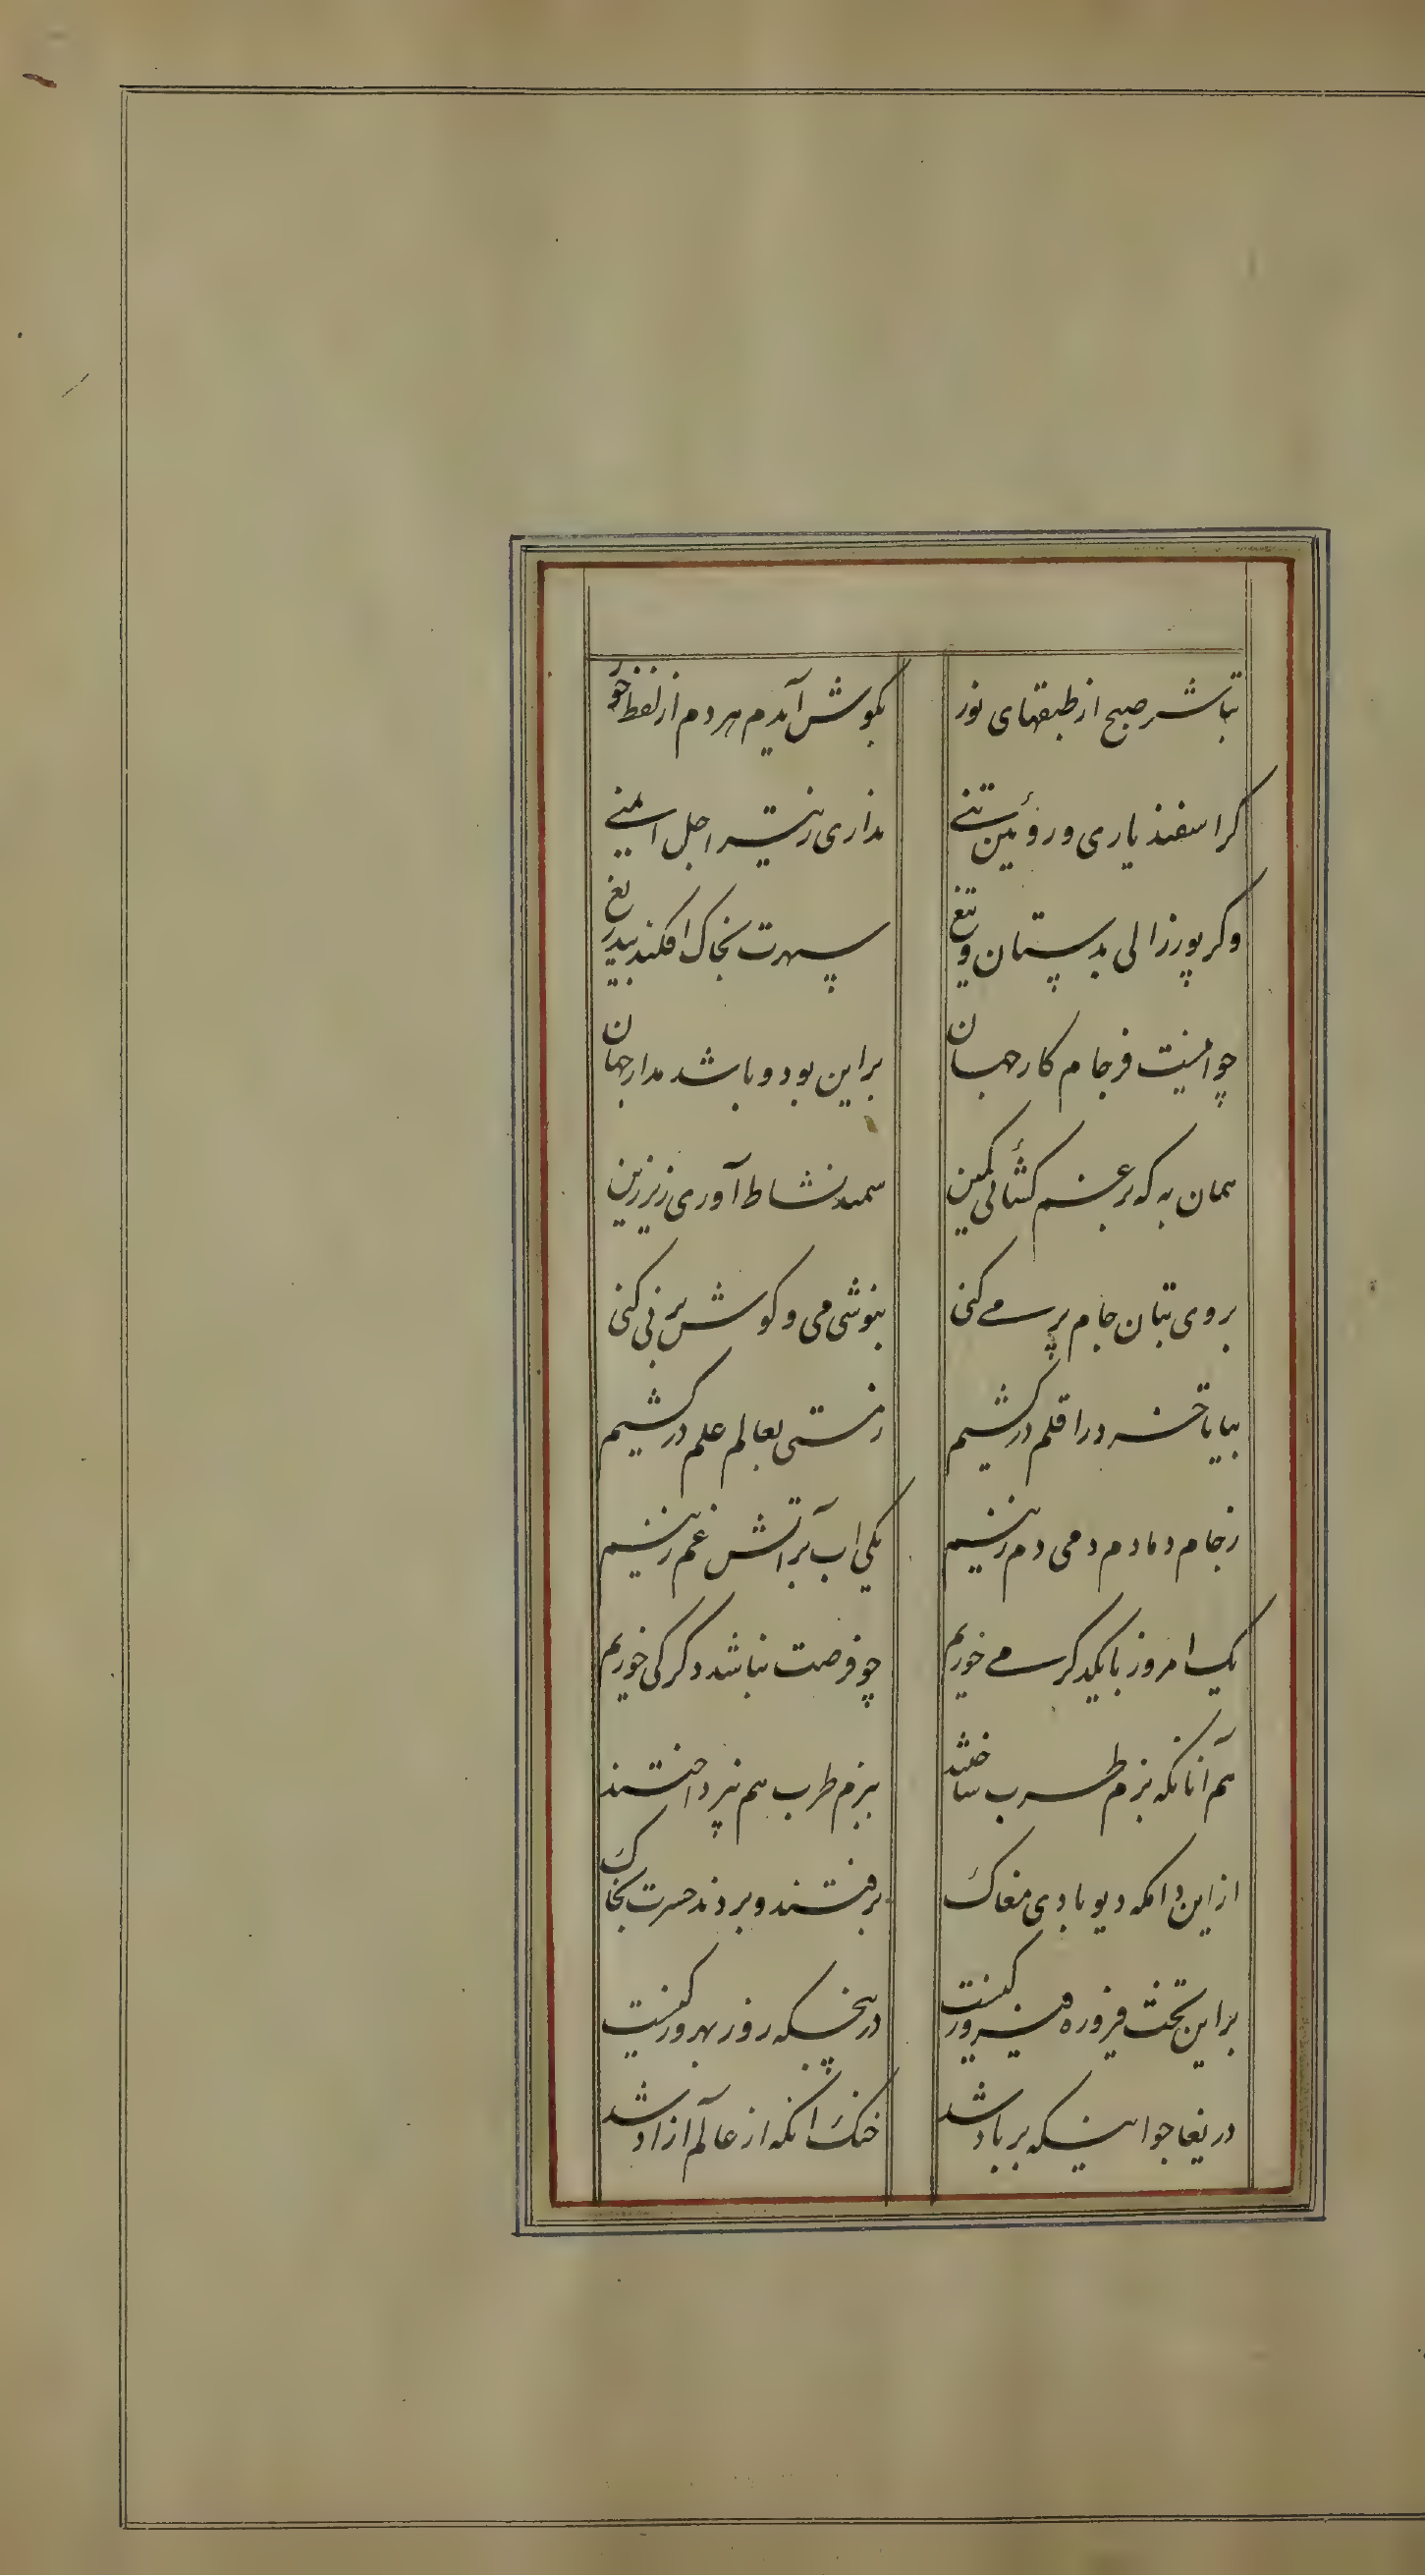 تباشر صبح از طبقهای نور بکوش آیدم هر دم از لفظ حور
کر اسفندیاری و روئین تنے نداری ز تیر اجل ایمنے
وکر پور زالی بدستان و تیغ سپهرت بخاک افکند بیدریغ
چو اینست فرجام کار جهان براین بود و باشد مدار جهان
همان به که بر غم کشائی کمین سمند نشاط آوری زیر زین
بروی بتان جام پر مے کنی بنوشی می و کوش بر نی کنی
بیا تا خرد را قلم در کشیم ز مستی بعالم علم در کشیم
ز جام دمادم دمی دم زنیم یکی اب بر اتش غم زنیم
یک امروز با یکدکر مے خوریم چو فرصت نباشد دکر کی خوریم
هم آنانکه بزم طرب ساختند ببزم طرب هم نپرداختند
ازاین دامکه دیو بادی مغاک برفتند و بردند حسرت بخاک
براین تخت فیروزه فیروز کیست درین چسکه روز بهروز کیست
دریغا جوانیکه بر باد شد خنک انکه از عالم ازاد شد